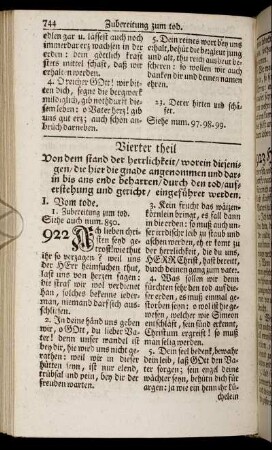 744 Zubereitung zum tod.
edlen gar u. lassest auch noch
immerdar erz wachsen in der
erden: dem köstlich kraft
stets mittel schaft, daß wir
erhalten werden.
4. O reicher GOtt! wir bit-
ten dich, segne die bergwerk
mildiglich, gib nothdurft die-
sem leben: o Vater herz! gib
uns gut erz; auch schön an-
bruch darneben.
5. Dein reines wort bey uns
erhalt, behüt die bergleut jung
und alt, thu reich ausbeut be-
scheren: so wollen wir auch
danken dir und deinen namen
ehren.
23. Derer hirten und schä-
fer.
Siehe num. 97. 98. 99.
Vierter theil
Von dem stand der herrlichkeit/ worein diejeni-
gen/ die hier die gnade angenommen und dar-
in bis ans ende beharren/ durch den tod/ auf-
erstehung und gericht/ eingeführet werden.
I. Vom tode.
1. Zubereitung zum tod.
Siehe auch num. 890.
922 Ach lieben chri-
sten seyd ge-
trost! wie thut
ihr so verzagen? weil uns
der HErr heimsuchen thut,
laßt uns von herzen sagen:
die straf wir wol verdienet
han, solches bekenne jeder-
man, niemand darf sich aus-
schliessen.
2. In deine händ uns geben
wir, o GOtt, du lieber Va-
ter! denn unser wandel ist
bey dir, hie wird uns nicht ge-
rathen: weil wir in dieser
hütten seyn, ist nur elend,
trübsal und pein, bey dir der
freuden warten.
3. Kein frucht das wäizen-
körnlein bringt, es fall dann
in die erden: so muß auch un-
ser irrdisch leib zu staub und
aschen werden, eh er komt zu
der herrlichkeit, die du uns,
HERR Christ, hast bereit,
durch deinen gang zum vater.
4. Was sollen wir denn
fürchten sehr den tod auf die-
ser erden? es muß einmal ge-
storben seyn: o wol ist hie ge-
wesen, welcher wie Simeon
entschläft, sein sünd erkennt,
Christum ergreift! so muß
man selig werden.
5. Dein seel bedenk, bewahr
dein leib, laß GOtt den Va-
ter sorgen; sein engel deine
wächter seyn, behüt dich für
argen: ja wie ein henn ihr kü-
chelein